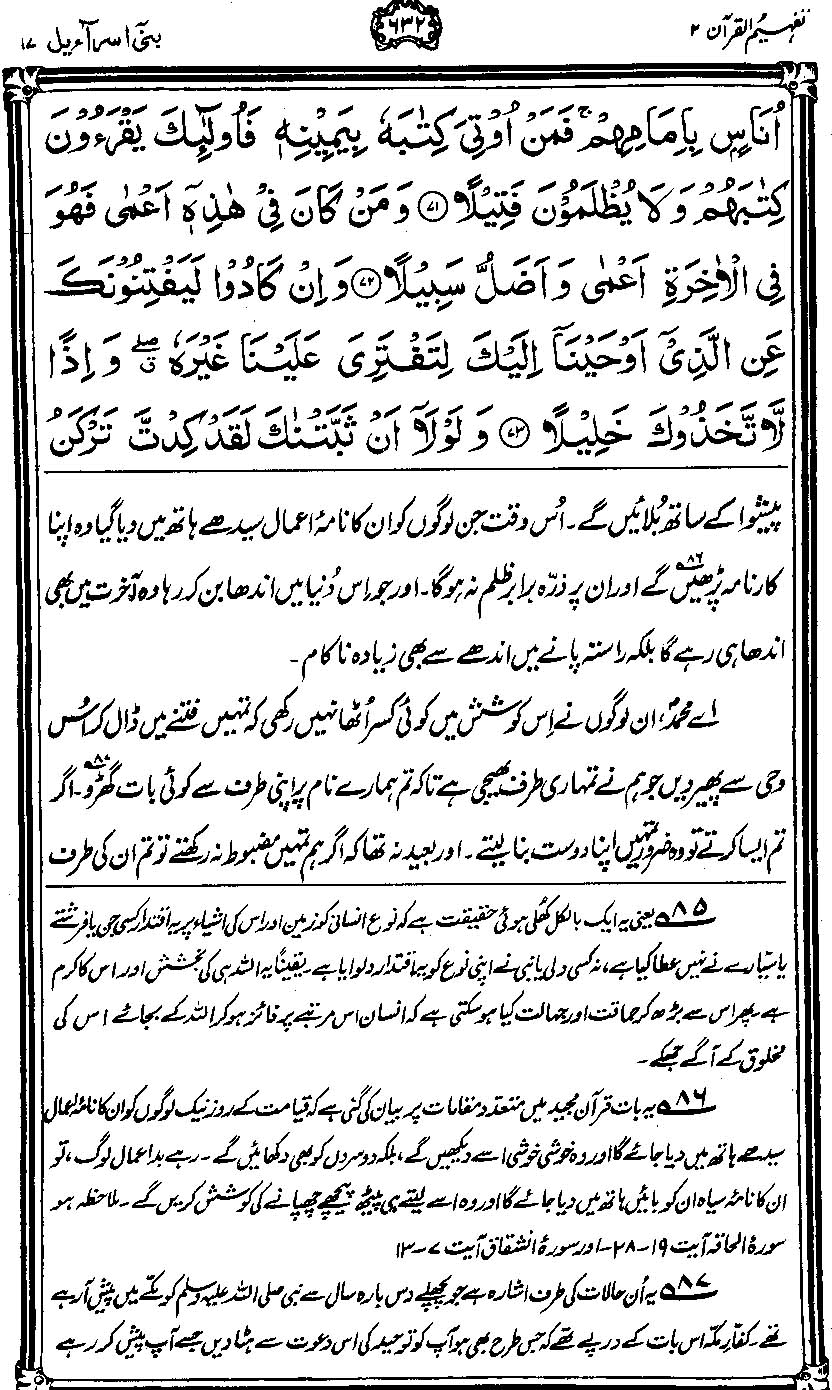 تفہیم القرآن ۲
۶۳۲
بنی اسرآءیل ۱۷
اُنَاسٍۭ بِاِمَامِہِمْ ۚ فَمَنْ اُوْتِیَ کِتٰبَہٗ بِیَمِیْنِہٖ فَاُولٰٓئِکَ یَقْرَءُوْنَ
کِتٰبَہُمْ وَلَا یُظْلَمُوْنَ فَتِیْلًا ﴿۷۱﴾ وَمَنْ کَانَ فِیْ ہٰذِہٖٓ اَعْمٰی فَہُوَ
فِی الْاٰخِرَۃِ اَعْمٰی وَاَضَلُّ سَبِیْلًا ﴿۷۲﴾ وَاِنْ کَادُوْا لَیَفْتِنُوْنَکَ
عَنِ الَّذِیْٓ اَوْحَیْنَآ اِلَیْکَ لِتَفْتَرِیَ عَلَیْنَا غَیْرَہٗ ۖ وَاِذًا
لَّاتَّخَذُوْکَ خَلِیْلًا ﴿۷۳﴾ وَلَوْلَآ اَنْ ثَبَّتْنٰکَ لَقَدْ کِدْتَّ تَرْکَنُ
پیشوا کے ساتھ بُلائیں گے۔ اُس وقت جن لوگوں کو ان کا نامۂ اعمال سیدھے ہاتھ میں دیا گیا وہ اپنا
کارنامہ پڑھیں ۸۶ گے اور ان پر ذرّہ برابر ظلم نہ ہوگا۔ اور جو اس دُنیا میں اندھا بن کر رہا وہ آخرت میں بھی
اندھا ہی رہے گا بلکہ راستہ پانے میں اندھے سے بھی زیادہ ناکام۔
اے محمدؐ، ان لوگوں نے اِس کوشش میں کوئی کسر اُٹھا نہیں رکھی کہ تمہیں فتنے میں ڈال کر اُس
وحی سے پھیر دیں جو ہم نے تمہاری طرف بھیجی ہے تاکہ تم ہمارے نام پر اپنی طرف سے کوئی بات گھڑو ۸۷۔ اگر
تم ایسا کرتے تو وہ ضرور تمہیں اپنا دوست بنا لیتے۔ اور بعید نہ تھا کہ اگر ہم تمہیں مضبوط نہ رکھتے تو تم ان کی طرف
۸۵ یعنی یہ ایک بالکل کھُلی ہوئی حقیقت ہے کہ نوعِ انسانی کو زمین اور اس کی اشیاء پر یہ اقتدار کسی جن یا فرشتے
یا سیّارے نے نہیں عطا کیا ہے، نہ کسی ولی یا نبی نے اپنی نوع کو یہ اقتدار دلوایا ہے۔ یقینًا یہ اللہ ہی کی بخشش اور اس کا کرم
ہے۔ پھر اس سے بڑھ کر حماقت اور جہالت کیا ہو سکتی ہے کہ انسان اس مرتبے پر فائز ہو کر اللہ کے بجائے اس کی
مخلوق کے آگے جھکے۔
۸۶ یہ بات قرآن مجید میں متعدد مقامات پر بیان کی گئی ہے کہ قیامت کے روز نیک لوگوں کو ان کا نامۂ اعمال
سیدھے ہاتھ میں دیا جائے گا اور وہ خوشی خوشی اسے دیکھیں گے، بلکہ دوسروں کو بھی دکھائیں گے۔ رہے بد اعمال لوگ، تو
ان کا نامۂ سیاہ ان کو بائیں ہاتھ میں دیا جائے گا اور وہ اسے لیتے ہی پیٹھ پیچھے چھپانے کی کوشش کریں گے۔ ملاحظہ ہو
سورۂ الحاقہ آیت ۱۹-۲۸- اور سورۂ انشقاق آیت ۷-۱۳
۸۷ یہ اُن حالات کی طرف اشارہ ہے جو پچھلے دس بارہ سال سے نبی صلی اللہ علیہ وسلم کو مکّے میں پیش آ رہے
تھے۔ کفارِ مکّہ اس بات کے درپے تھے کہ جس طرح بھی ہو آپ کو توحید کی اس دعوت سے ہٹا دیں جسے آپ پیش کر رہے